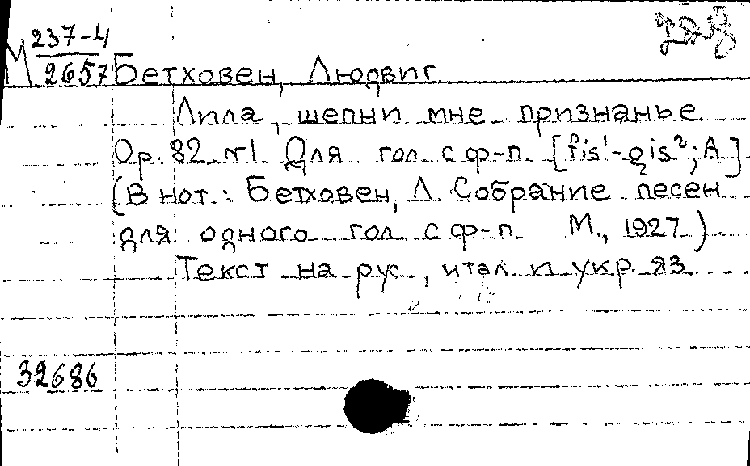 237-4
М 2657 Бетховен, Людвиг
Лила, шепни мне признанье
Ор. 82 №1 Для гол. с ф-п. [fis¹-gis²; A]
(В нот.: Бетховен, Л. Собрание песен
для одного гол. с ф-п. М., 1927)
Текст на рус., итал. и укр. яз.
32686